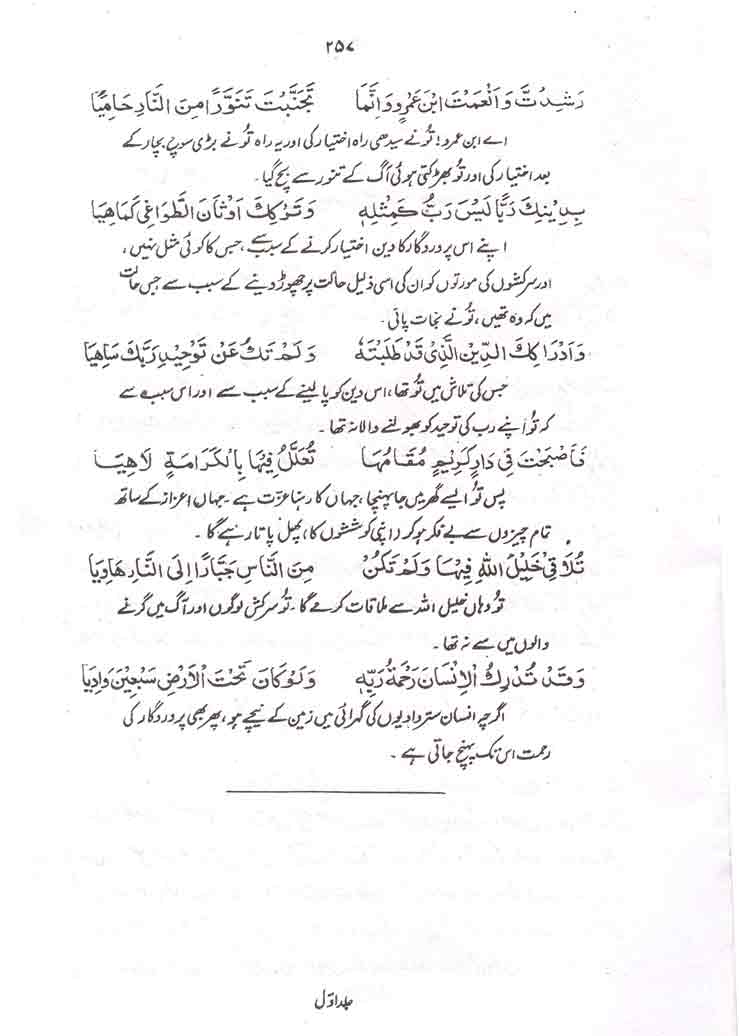 ۲۵۷
رَشِدْتَّ وَاَنْعَمْتَ ابْنَ عَمْرٍو وَاِنَّمَا تَجَنَّبْتَ تَنَوُّرًا مِنَ النَّارِ حَامِيًا
اے ابن عمرو! تُو نے سیدھی راہ اختیار کی اور یہ راہ تُو نے بڑی سوچ بچار کے
بعد اختیار کی اور تُو بھڑکتی ہوئی آگ کے تنور سے بچ گیا۔
بِدِيْنِكَ رَبًّا لَيْسَ رَبٌّ كَمِثْلِهٖ وَتَرْكِكَ اَوْثَانَ الطَّوَاغِيْ كَمَاهِيَا
اپنے اس پروردگار کا دین اختیار کرنے کے سبب سے، جس کا کوئی مثل نہیں،
اور سرکشوں کی مورتوں کو ان کی اسی ذلیل حالت پر چھوڑ دینے کے سبب سے جس حالت
میں کہ وہ تھیں، تُو نے نجات پائی۔
وَاِدْرَاكِكَ الدِّيْنَ الَّذِيْ قَدْ طَلَبْتَهٗ وَلَمْ تَكُ عَنْ تَوْحِيْدِ رَبِّكَ سَاهِيَا
جس کی تلاش میں تُو تھا، اس دین کو پا لینے کے سبب سے اور اس سبب سے
کہ تُو اپنے رب کی توحید کو بھولنے والا نہ تھا۔
فَاَصْبَحْتَ فِيْ دَارٍ كَرِيْمٍ مُقَامُهَا تُعَلَّلُ فِيْهَا بِالْكَرَامَةِ لَاهِيَا
پس تُو ایسے گھر میں جا پہنچا، جہاں کا رہنا عزت ہے۔ جہاں اعزاز کے ساتھ
تمام چیزوں سے بے فکر ہو کر (اپنی کوششوں کا) پھل پاتا رہے گا۔
تُلَاقِيْ خَلِيْلَ اللّٰهِ فِيْهَا وَلَمْ تَكُنْ مِنَ النَّاسِ جَبَّارًا اِلَى النَّارِ هَاوِيَا
تُو وہاں خلیل اللہ سے ملاقات کرے گا۔ تُو سرکش لوگوں اور آگ میں گرنے
والوں میں سے نہ تھا۔
وَقَدْ تُدْرِكُ الْاِنْسَانَ رَحْمَةُ رَبِّهٖ وَلَوْكَانَ تَحْتَ الْاَرْضِ سَبْعِيْنَ وَادِيَا
اگرچہ انسان ستر وادیوں کی گہرائی میں زمین کے نیچے ہو، پھر بھی پروردگار کی
رحمت اس تک پہنچ جاتی ہے۔
جلد اوّل